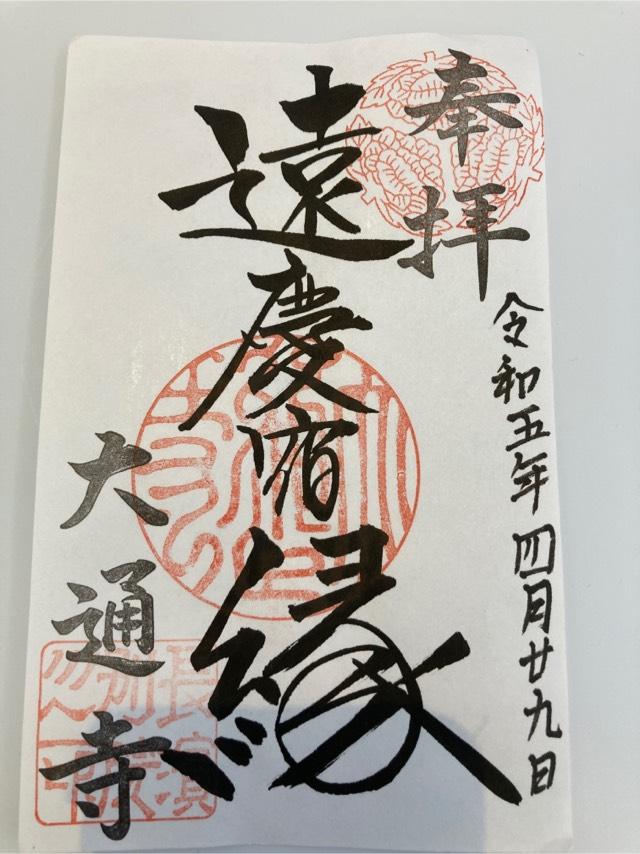 奉拝
令和五年四月廿九日
遠慶宿縁
大通寺
長濱
別院